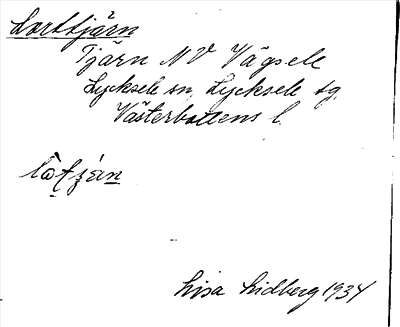 Lorttjärn
Tjärn NV Vägsele
Lycksele sn, Lycksele tg.
Västerbottens l.
Lisa Lidberg 1934